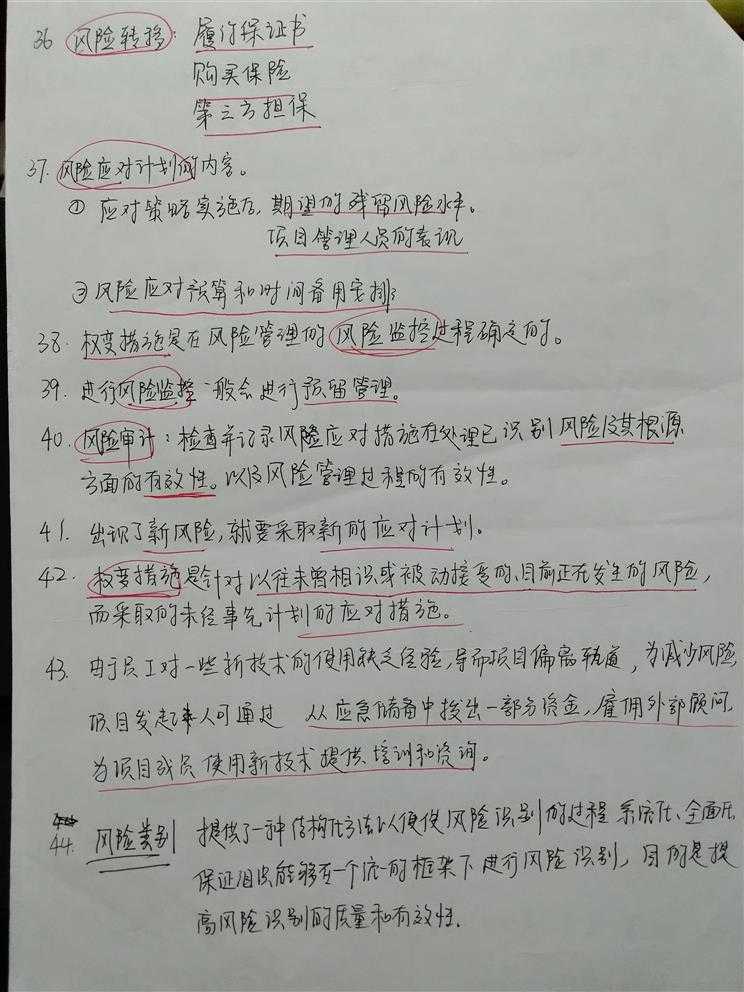 36 风险转移：履约保证书
购买保险
第三方担保
37. 风险应对计划的内容。
① 应对策略实施后，期望的残留风险水平。
项目管理人员的表现
③ 风险应对预算和时间备用安排
38. 权变措施是在风险管理的风险监控过程确定的。
39. 进行风险监控一般会进行预留管理。
40. 风险审计：检查并记录风险应对措施在处理已识别风险及其根源
方面的有效性。以及风险管理过程的有效性。
41. 出现了新风险，就要采取新的应对计划。
42. 权变措施是针对以往未曾相识或被动接受的、目前正在发生的风险，
而采取的未经事先计划的应对措施。
43. 由于员工对一些新技术的使用缺乏经验，导而项目偏离轨道，为减少风险
项目发起人可通过 从应急储备中拨出一部分资金，雇佣外部顾问，
为项目成员使用新技术提供培训和咨询。
44. 风险类别 提供了一种结构化方法以便使风险识别的过程系统化、全面化
保证组织能够在一个统一的框架下进行风险识别，目的是提
高风险识别的质量和有效性.